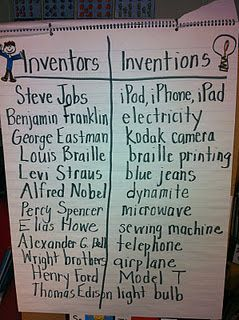 Inventors Inventions
Steve Jobs iPod, iPhone, iPad
Benjamin Franklin electricity
George Eastman Kodak camera
Louis Braille braille printing
Levi Straus blue jeans
Alfred Nobel dynamite
Percy Spencer microwave
Elias Howe sewing machine
Alexander G. Bell telephone
Wright brothers airplane
Henry Ford Model T
Thomas Edison light bulb